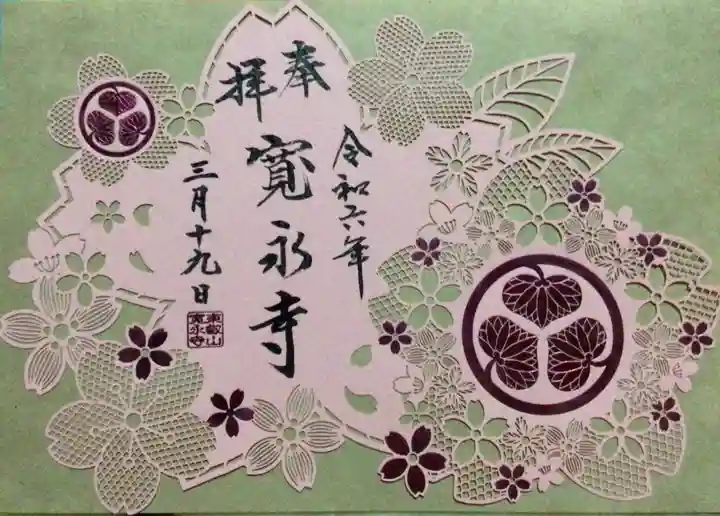 奉拝
令和六年
寛永寺
三月十九日
東叡山
寛永寺